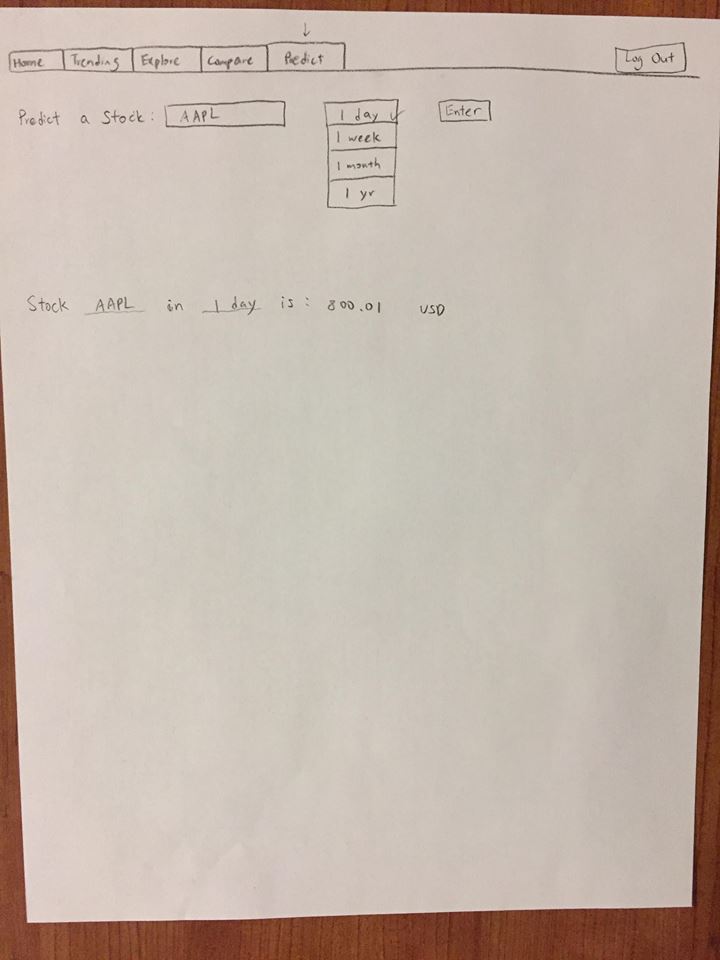 Home Trending Explore Compare Predict Log Out
Predict a Stock: AAPL 1 day Enter
1 week
1 month
1 yr
Stock AAPL in 1 day is: 800.01 USD